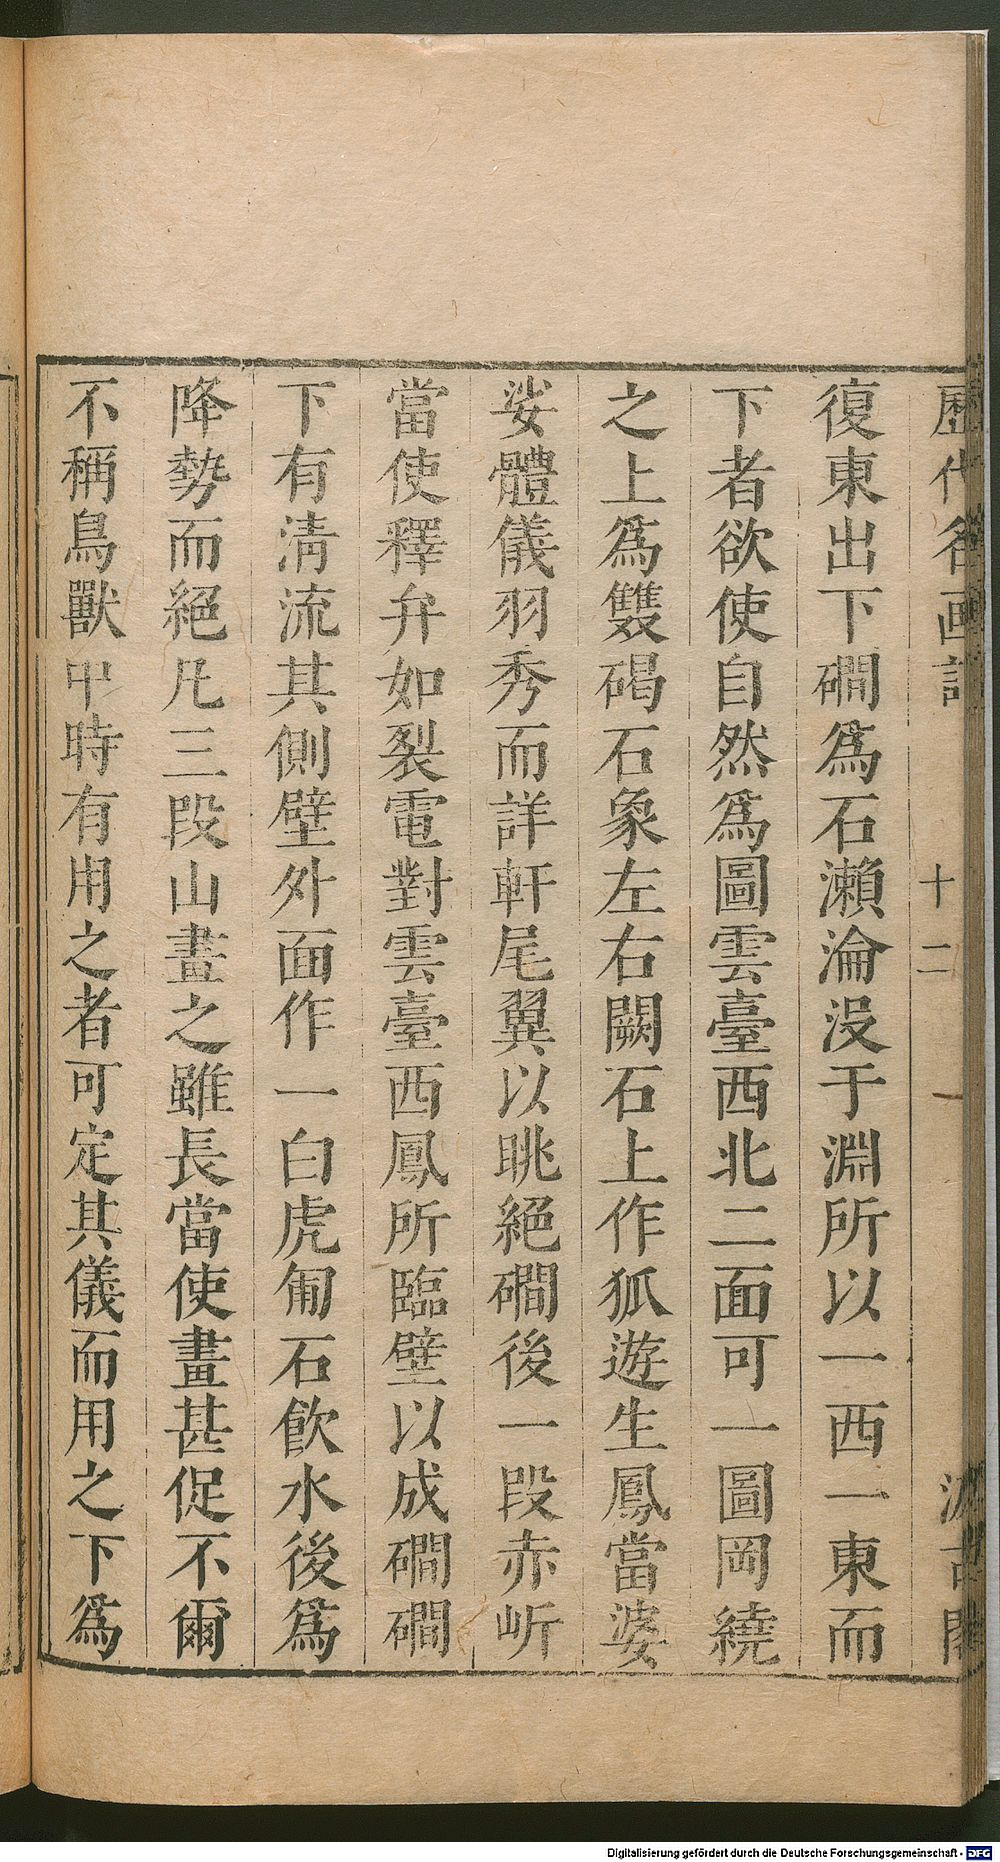 歷代名画記
十二
汲古閣
復東出下磵爲石瀨淪沒于淵所以一西一東而
下者欲使自然爲圖雲臺西北二面可一圖岡繞
之上爲雙碣石象左右闕石上作狐遊生鳳當婆
娑體儀羽秀而詳軒尾翼以眺絕磵後一段赤岓
當使釋弁如裂電對雲臺西鳳所臨壁以成磵磵
下有清流其側壁外面作一白虎匍石飮水後爲
降勢而絕凡三段山畫之雖長當使畫甚促不爾
不稱鳥獸中時有用之者可定其儀而用之下爲
Digitalisierung gefördert durch die Deutsche Forschungsgemeinschaft - DFG